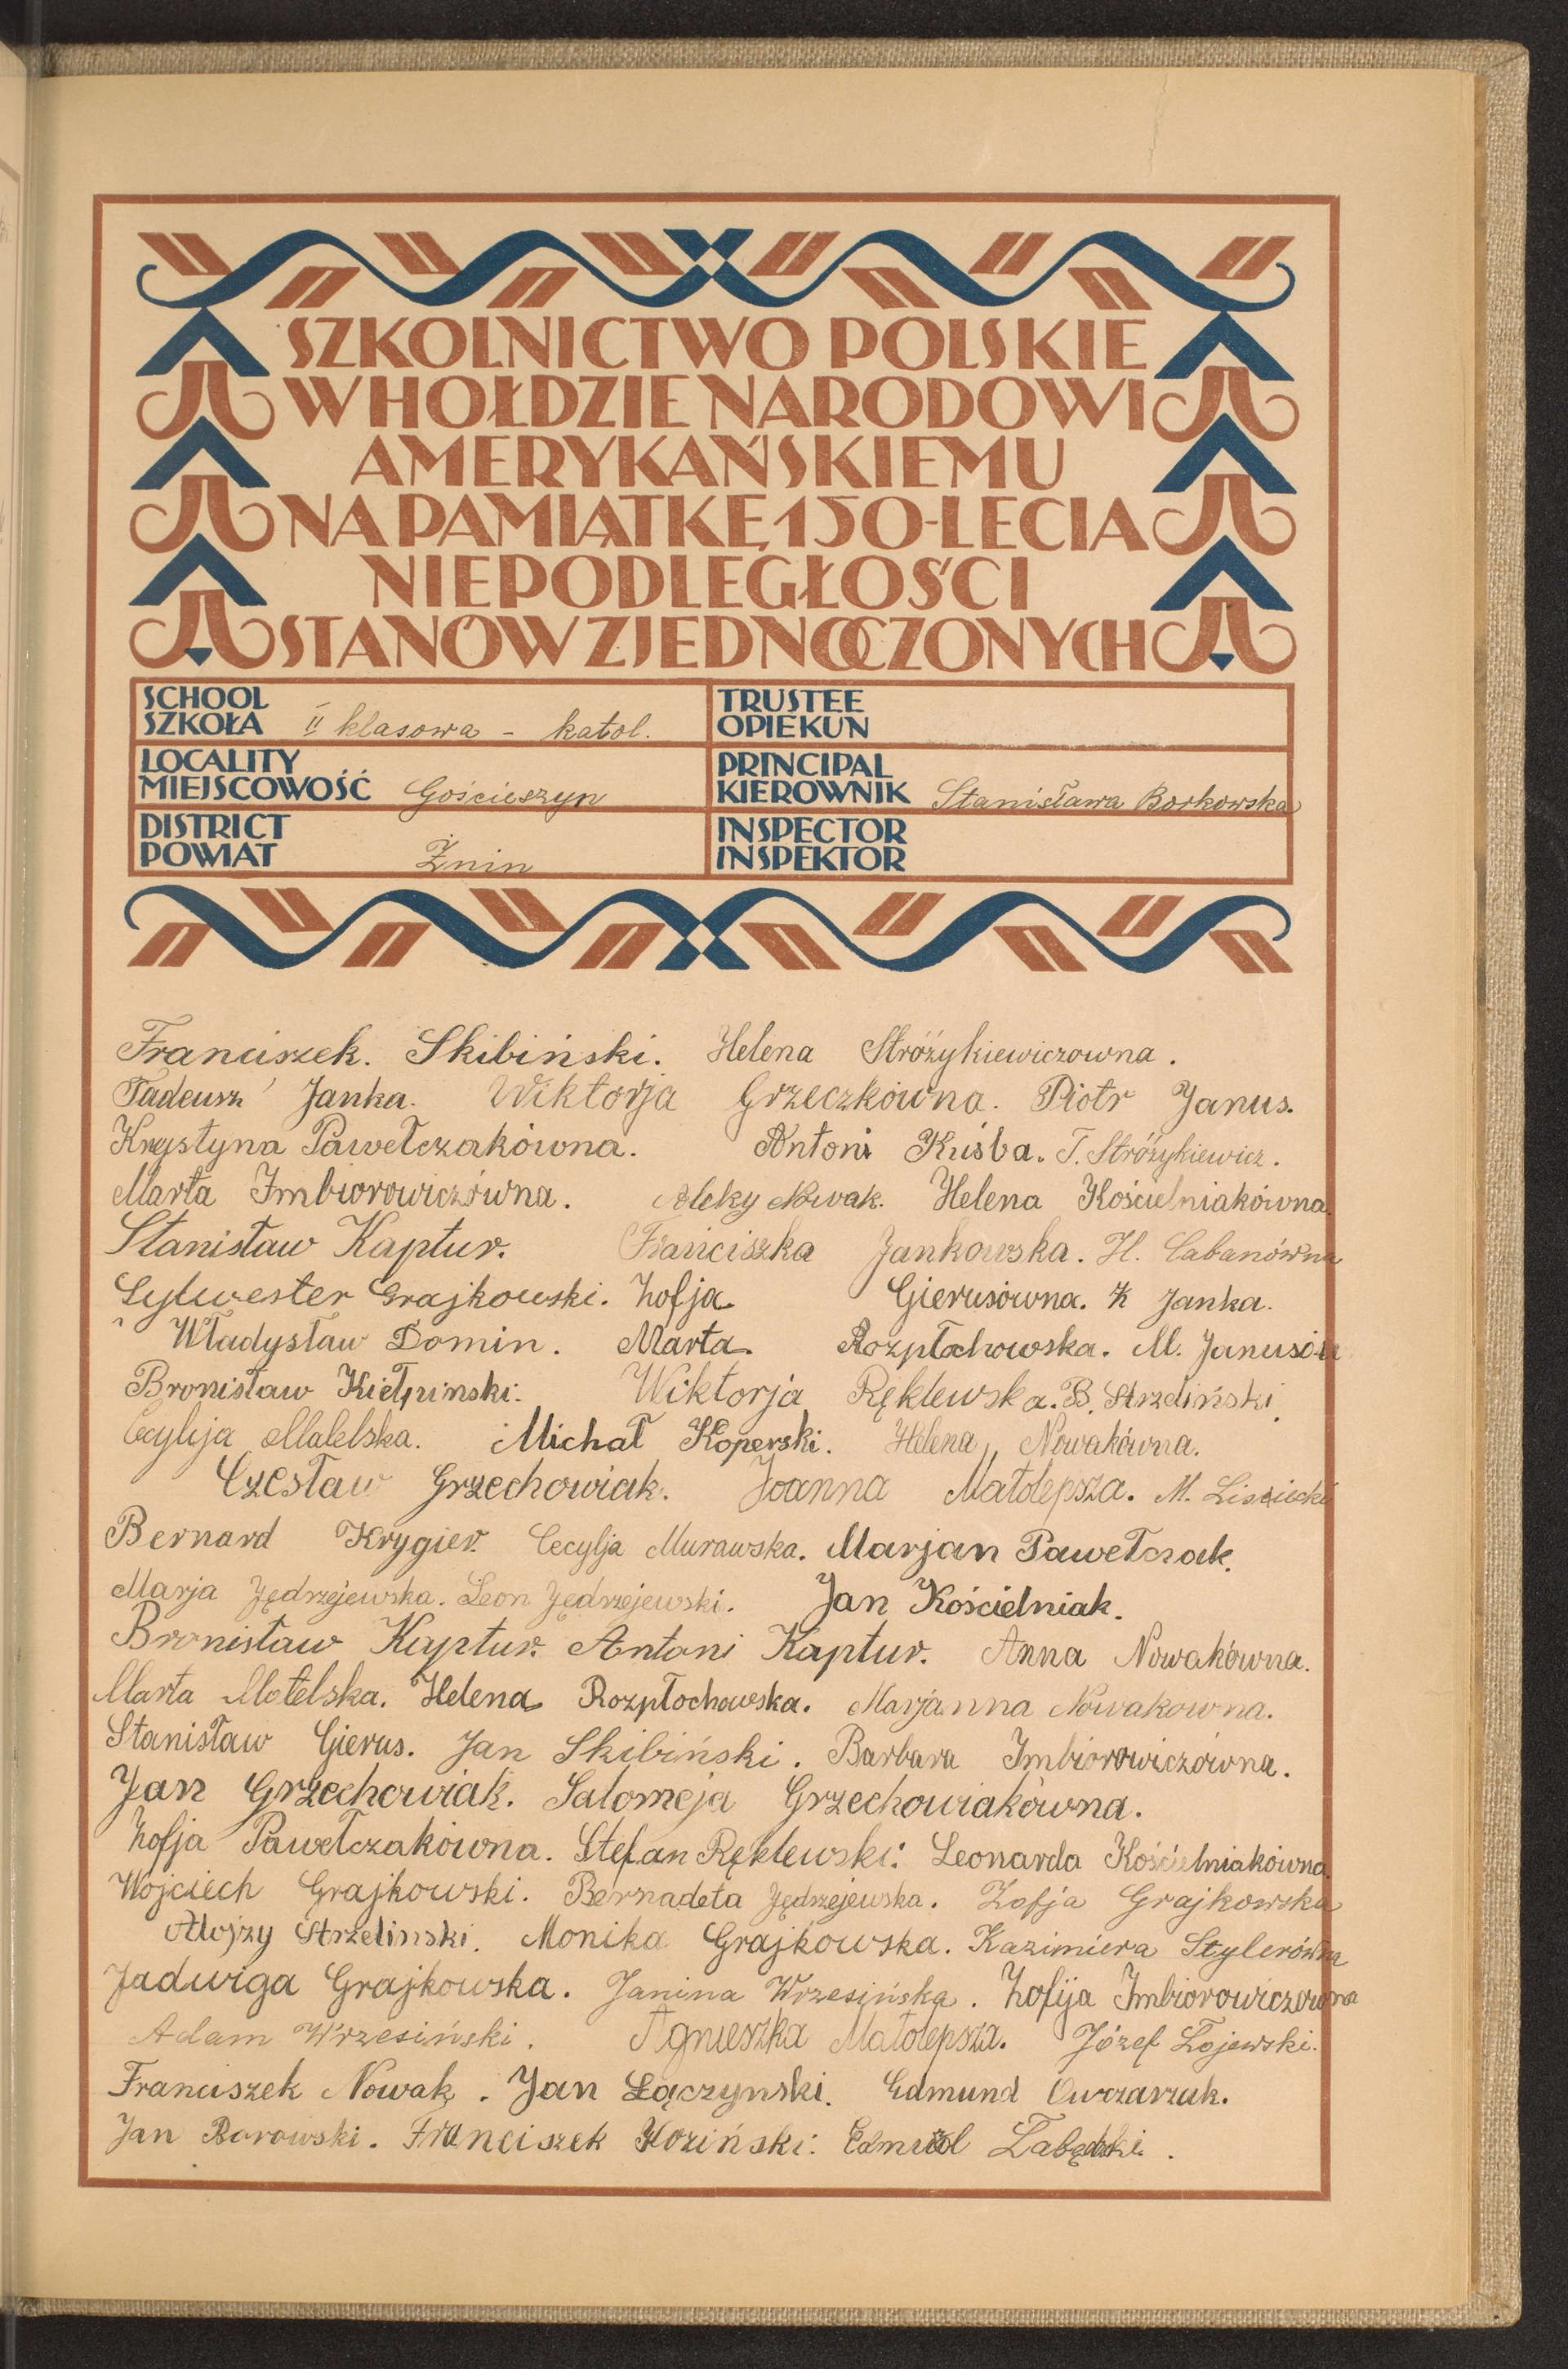 SZKOLNICTWO POLSKIE
W HOŁDZIE NARODOWI
AMERYKAŃSKIEMU
NA PAMIĄTKĘ 150-LECIA
NIEPODLEGŁOŚCI
STANÓW ZJEDNOCZONYCH
SCHOOL
SZKOŁA II klasowa - katol.
TRUSTEE
OPIEKUN
LOCALITY
MIEJSCOWOŚĆ Gościeszyn
PRINCIPAL
KIEROWNIK Stanisława Borkowska
DISTRICT
POWIAT Żnin
INSPECTOR
INSPEKTOR
Franciszek. Skibiński. Helena Stróżykiewiczowna.
Tadeusz Janka. Wiktorja Grzeczkówna. Piotr Janus.
Krystyna Pawełczakówna. Antoni Kuśba. T. Stróżykiewicz.
Marta Imbiorowiczówna. Nowak. Helena Kościelniakówna.
Stanisław Kaptur. Franciszka Jankowska. H. Cabanówna
Sylwester Grajkowski. Zofja Gierusówna. K Janka.
Władysław Domin. Marta Rozpłochowska. M. Janusów
Bronisław Kiełpinski. Wiktorja Ręklewska. B. Strzeliński.
Cecylija Matelska. Michał Koperski. Helena Nowakówna.
Czesław Grzechowiak. Joanna Małolepsza. M. Lisiecki
Bernard Krygier. Cecylja Murawska. Marjan Pawełczak.
Marja Jędrzejewska. Leon Jędrzejewski. Jan Kościelniak.
Bronisław Kaptur. Antoni Kaptur. Anna Nowakówna.
Marta Matelska. Helena Rozpłochowska. Marjanna Nowakowna.
Stanisław Gierus. Jan Skibiński. Barbara Imbiorowiczówna.
Jan Grzechowiak. Salomeja Grzechowiakówna.
Zofja Pawełczakówna. Stefan Ręklewski. Leonarda Kościelniakówna
Wojciech Grajkowski. Bernadeta Jędrzejewska. Zofja Grajkowska
Alojzy Strzelinski. Monika Grajkowska. Kazimiera Stylerówna
Jadwiga Grajkowska. Janina Wrzesińska. Zofija Imbiorowiczowna
Adam Wrzesiński. Agnieszka Małolepsza. Józef Łojewski.
Franciszek Nowak. Jan Łączynski. Edmund Owczarzak.
Jan Borowski. Franciszek Koziński. Łabędzki.